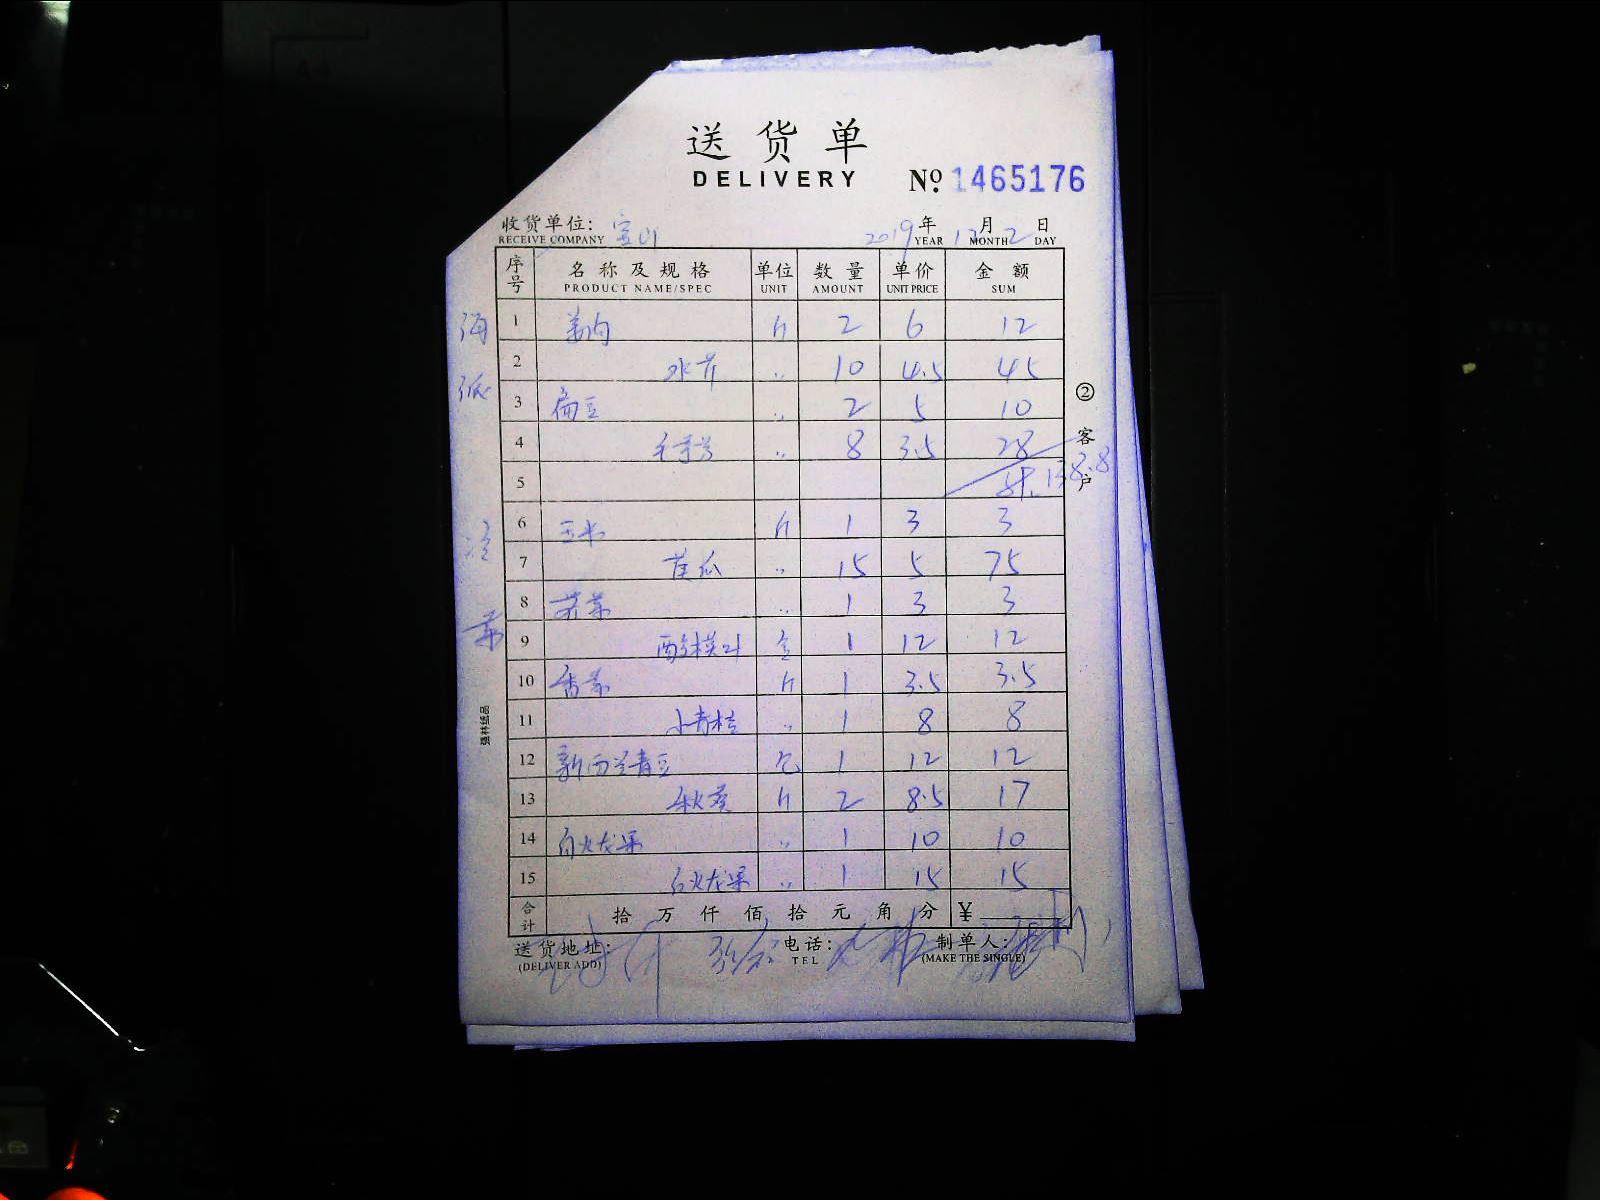 送货单
DELIVERY
№ 1465176
收货单位: 宝山 2019年12月2日
RECEIVE COMPANY YEAR MONTH DAY
序号 名称及规格 单位 数量 单价 金额
PRODUCT NAME/SPEC UNIT AMOUNT UNIT PRICE SUM
1 斤 2 6 12
2 水芹 〃 10 4.5 45
3 扁豆 〃 2 5 10
4 〃 8 3.5 28
5 138.8
6 玉米 斤 1 3 3
7 黄瓜 〃 15 5 75
8 〃 1 3 3
9 盒 1 12 12
10 香菜 斤 1 3.5 3.5
11 小青桔 〃 1 8 8
12 新西兰青豆 包 1 12 12
13 秋葵 斤 2 8.5 17
14 白火龙果 〃 1 10 10
15 红火龙果 〃 1 15 15
合计 拾 万 仟 佰 拾 元 角 分 ¥
送货地址: 电话: 制单人:
(DELIVER ADD) TEL (MAKE THE SINGLE)
②客户
强林纸品